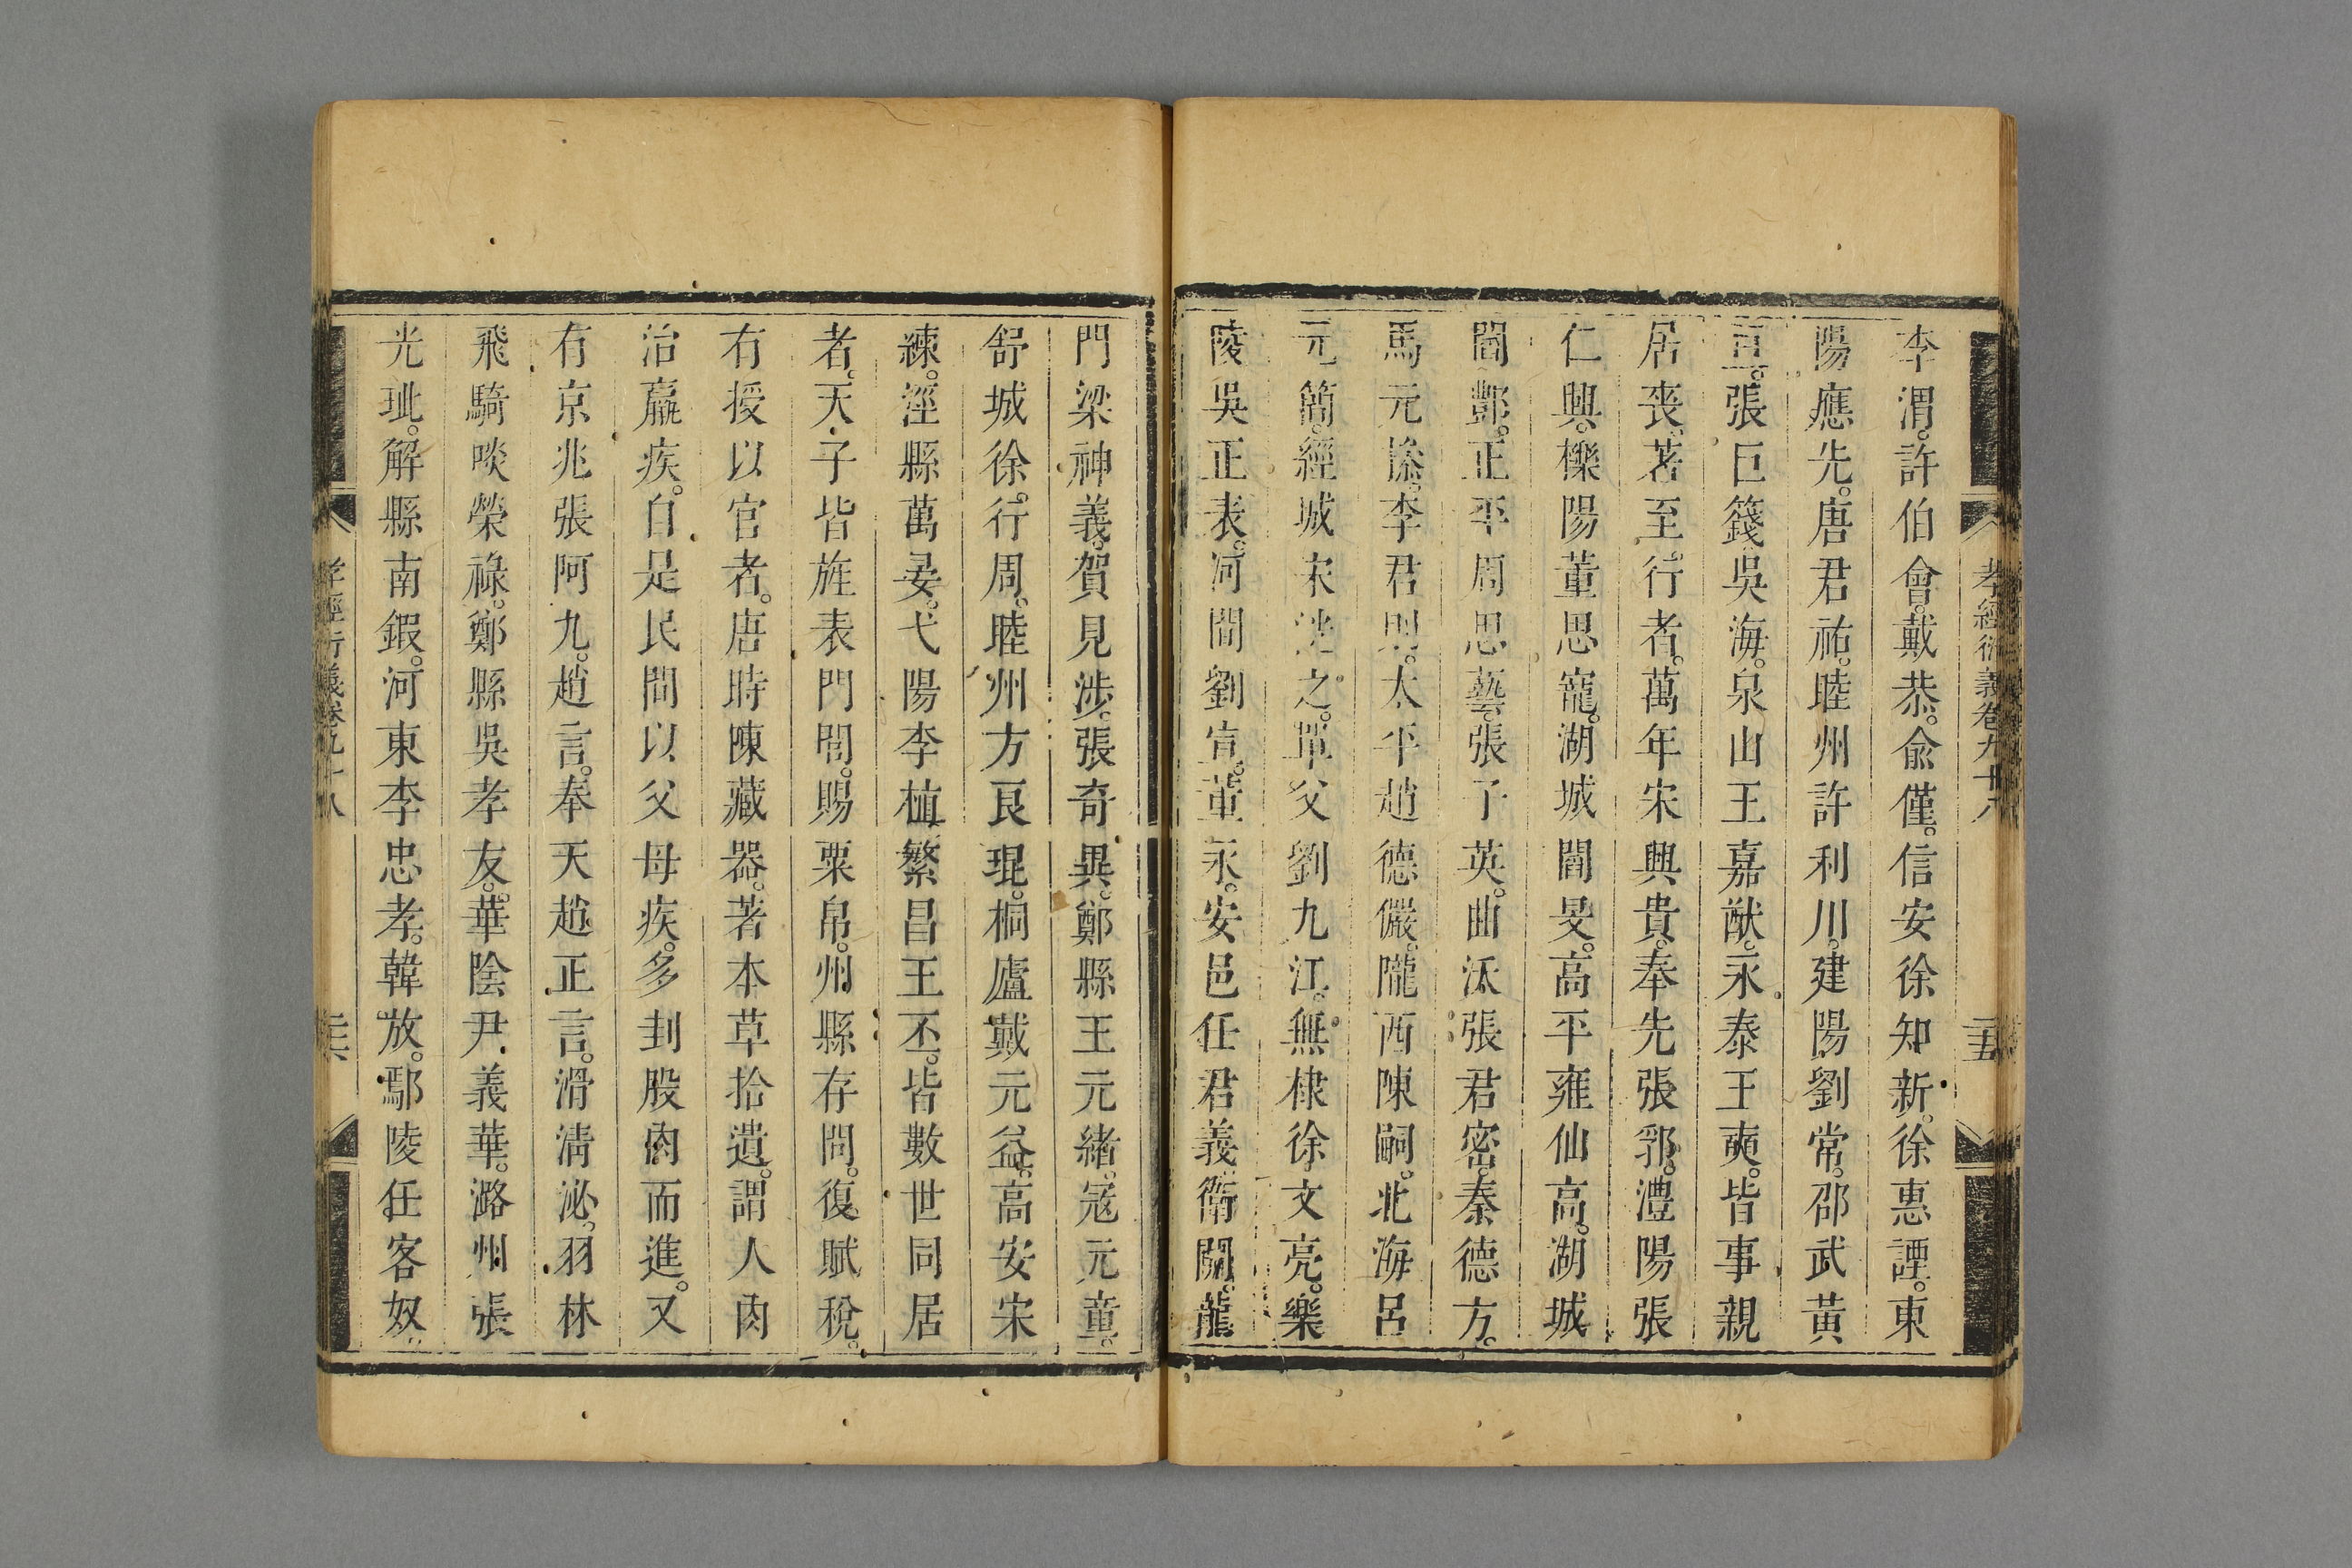 孝經衍義卷九十八
二五
李渭。許伯會。戴恭。俞僅。信安徐知新。徐惠諲。東
陽應先。唐君祐。睦州許利川。建陽劉常。邵武黃
亘。張巨籛。吳海。泉山王嘉猷。永泰王奭。皆事親
居喪著至行者。萬年宋興貴。奉先張郛。澧陽張
仁興。櫟陽董思寵。湖城閻旻。高平雍仙高。湖城
閻酆。正平周思藝。張子英。曲沃張君密。秦德方。
馬元操。李君則。太平趙德儼。隴西陳嗣。北海呂
元簡。經城宋洸之。單父劉九江。無棣徐文亮。樂
陵吳正表。河間劉宣。董永。安邑任君義衛開。龍
門梁神義。賀見涉。張奇異。鄭縣王元緒。寇元童。
舒城徐。行周。睦州方良琨。桐廬戴元益。高安宋
練。涇縣萬晏。弋陽李植。繁昌王丕。皆數世同居
者。天子皆旌表門閭。賜粟帛。州縣存問。復賦稅。
有授以官者。唐時陳藏器。著本草拾遺。謂人肉
治羸疾。自是民間以父母疾。多刲股肉而進。又
有京兆張阿九。趙言。奉天趙正言。滑清泌。羽林
飛騎啖榮祿。鄭縣吳孝友。華陰尹義華。潞州張
光玼。解縣南鍜。河東李忠孝。韓放。鄢陵任客奴。
孝經衍義卷九十八